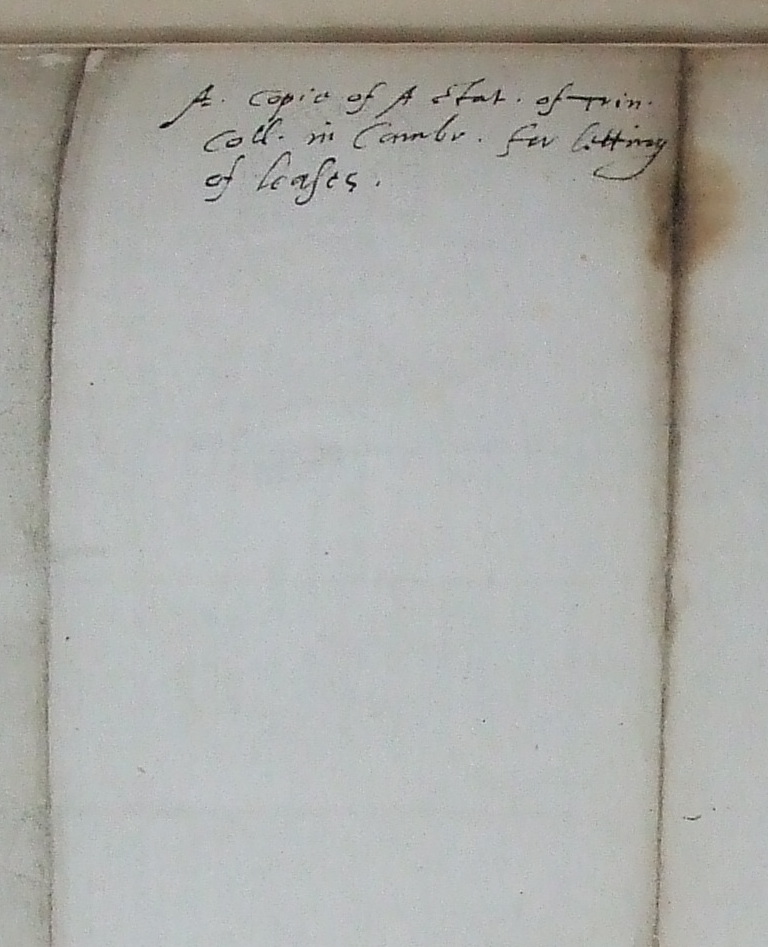 A. Copie of A Stat. of Trin.
Coll. in Cambr. for letting
of leases.